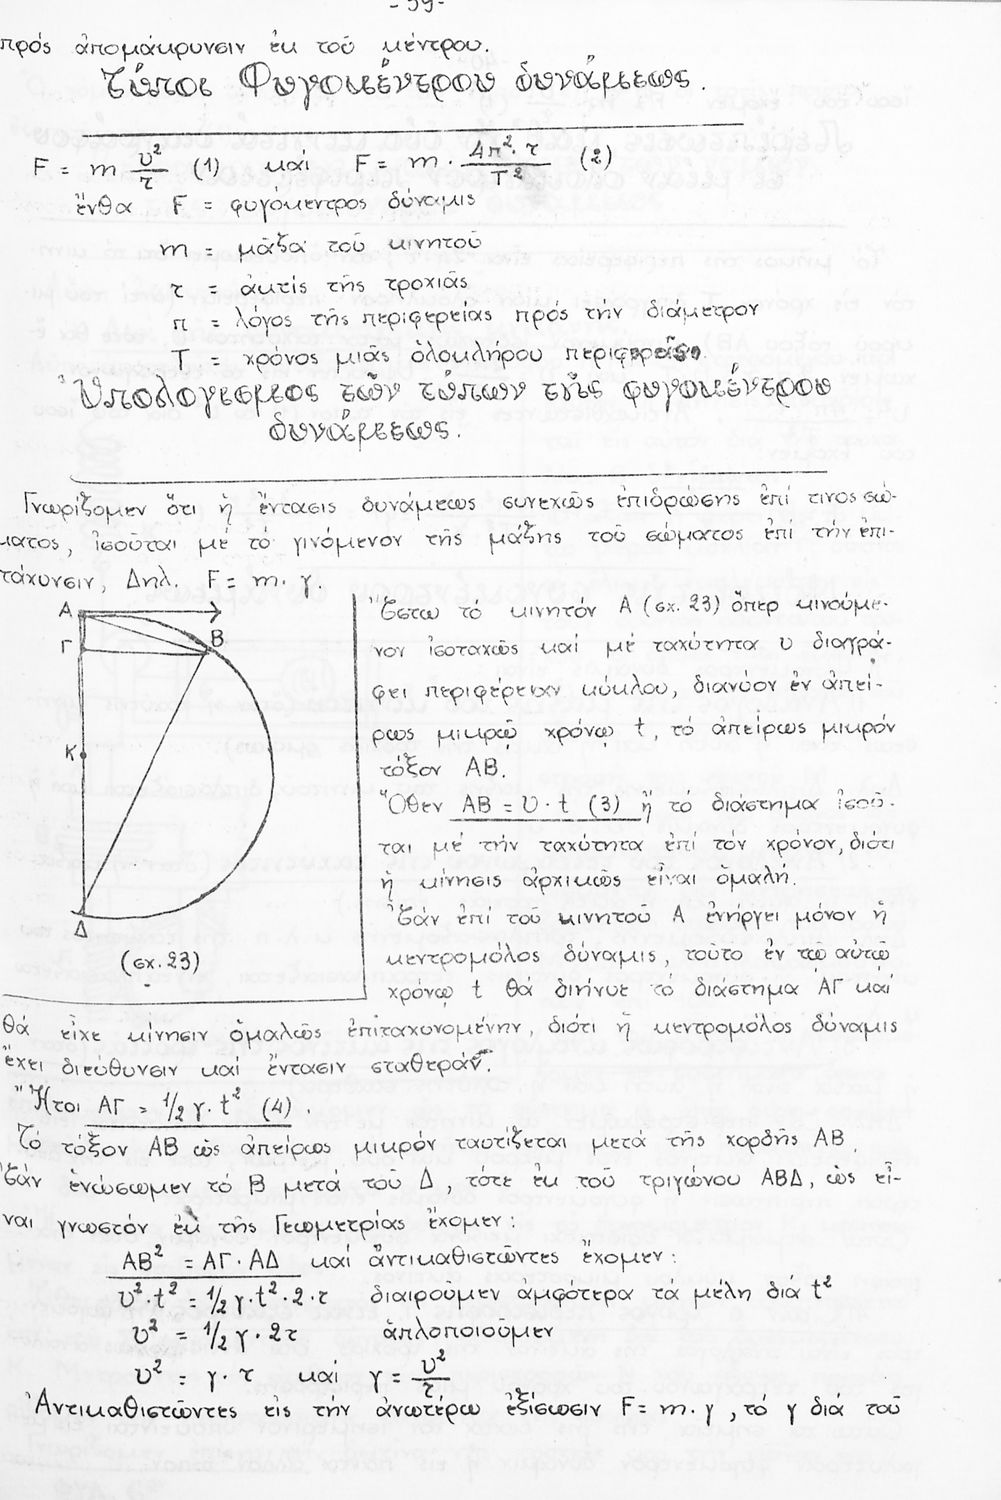 - 39 -
πρός ἀπομάκρυνσιν ἐκ τοῦ κέντρου.
Τύποι Φυγοκέντρου δυνάμεως.
F = m υ²/τ (1) καί F = m · 4π² · τ/T² (2)
ἔνθα F = φυγόκεντρος δύναμις
m = μᾶζα τοῦ κινητοῦ
τ = ἀκτίς τῆς τροχιᾶς
π = λόγος τῆς περιφερείας πρός τήν διάμετρον
T = χρόνος μιᾶς ὁλοκλήρου περιφερείας.
Ὑπολογισμος τῶν τύπων τῆς φυγοκέντρου
δυνάμεως.
Γνωρίζομεν ὅτι ἡ ἔντασις δυνάμεως συνεχῶς ἐπιδρώσης ἐπί τινος σώ-
ματος, ἰσοῦται μέ τό γινόμενον τῆς μάζης τοῦ σώματος ἐπί τήν ἐπι-
τάχυνσιν, Δηλ. F = m · γ.
Α
Γ
Β
Κ
Δ
(σχ. 23)
Ἔστω τό κινητόν Α (σχ. 23) ὅπερ κινούμε-
νον ἰσοταχῶς καί μέ ταχύτητα υ διαγρά-
φει περιφέρειαν κύκλου, διανύον ἐν ἀπεί-
ρως μικρῷ χρόνῳ t, τό ἀπείρως μικρόν
τόξον ΑΒ.
Ὅθεν ΑΒ = υ · t (3) ἤ το διάστημα ἰσοῦ-
ται μέ τήν ταχύτητα ἐπί τόν χρόνον, διότι
ἡ κίνησις ἀρχικῶς εἶναι ὁμαλή.
Ἐάν ἐπί τοῦ κινητοῦ Α ἐνήργει μόνον ἡ
κεντρομόλος δύναμις, τοῦτο ἐν τῶ αὐτῶ
χρόνῳ t θά διήνυε τό διάστημα ΑΓ καί
θά εἶχε κίνησιν ὁμαλῶς ἐπιταχυνομένην, διότι ἡ κεντρομόλος δύναμις
ἔχει διεύθυνσιν καί ἔντασιν σταθεράν.
Ἤτοι ΑΓ = 1/2 γ · t² (4).
Τό τόξον ΑΒ ὡς ἀπείρως μικρόν ταυτίζεται μετά τῆς χορδῆς ΑΒ.
Ἐάν ἑνώσωμεν τό Β μετα του Δ, τότε ἐκ τοῦ τριγώνου ΑΒΔ, ὡς εἶ-
ναι γνωστόν ἐκ τῆς Γεωμετρίας ἔχομεν:
ΑΒ² = ΑΓ · ΑΔ καί ἀντικαθιστῶντες ἔχομεν:
υ² · t² = 1/2 γ · t² · 2 · τ διαιρουμεν ἀμφότερα τα μέλη διά t²
υ² = 1/2 γ · 2τ ἁπλοποιοῦμεν
υ² = γ · τ καί γ = υ²/τ
Ἀντικαθιστῶντες εἰς τήν ἀνωτέρω ἐξίσωσιν F = m · γ, τό γ δια τοῦ